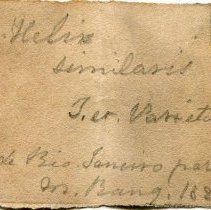 Helix
similaris
Fer. Variet
de Rio Janeiro par
M. Rang. 18